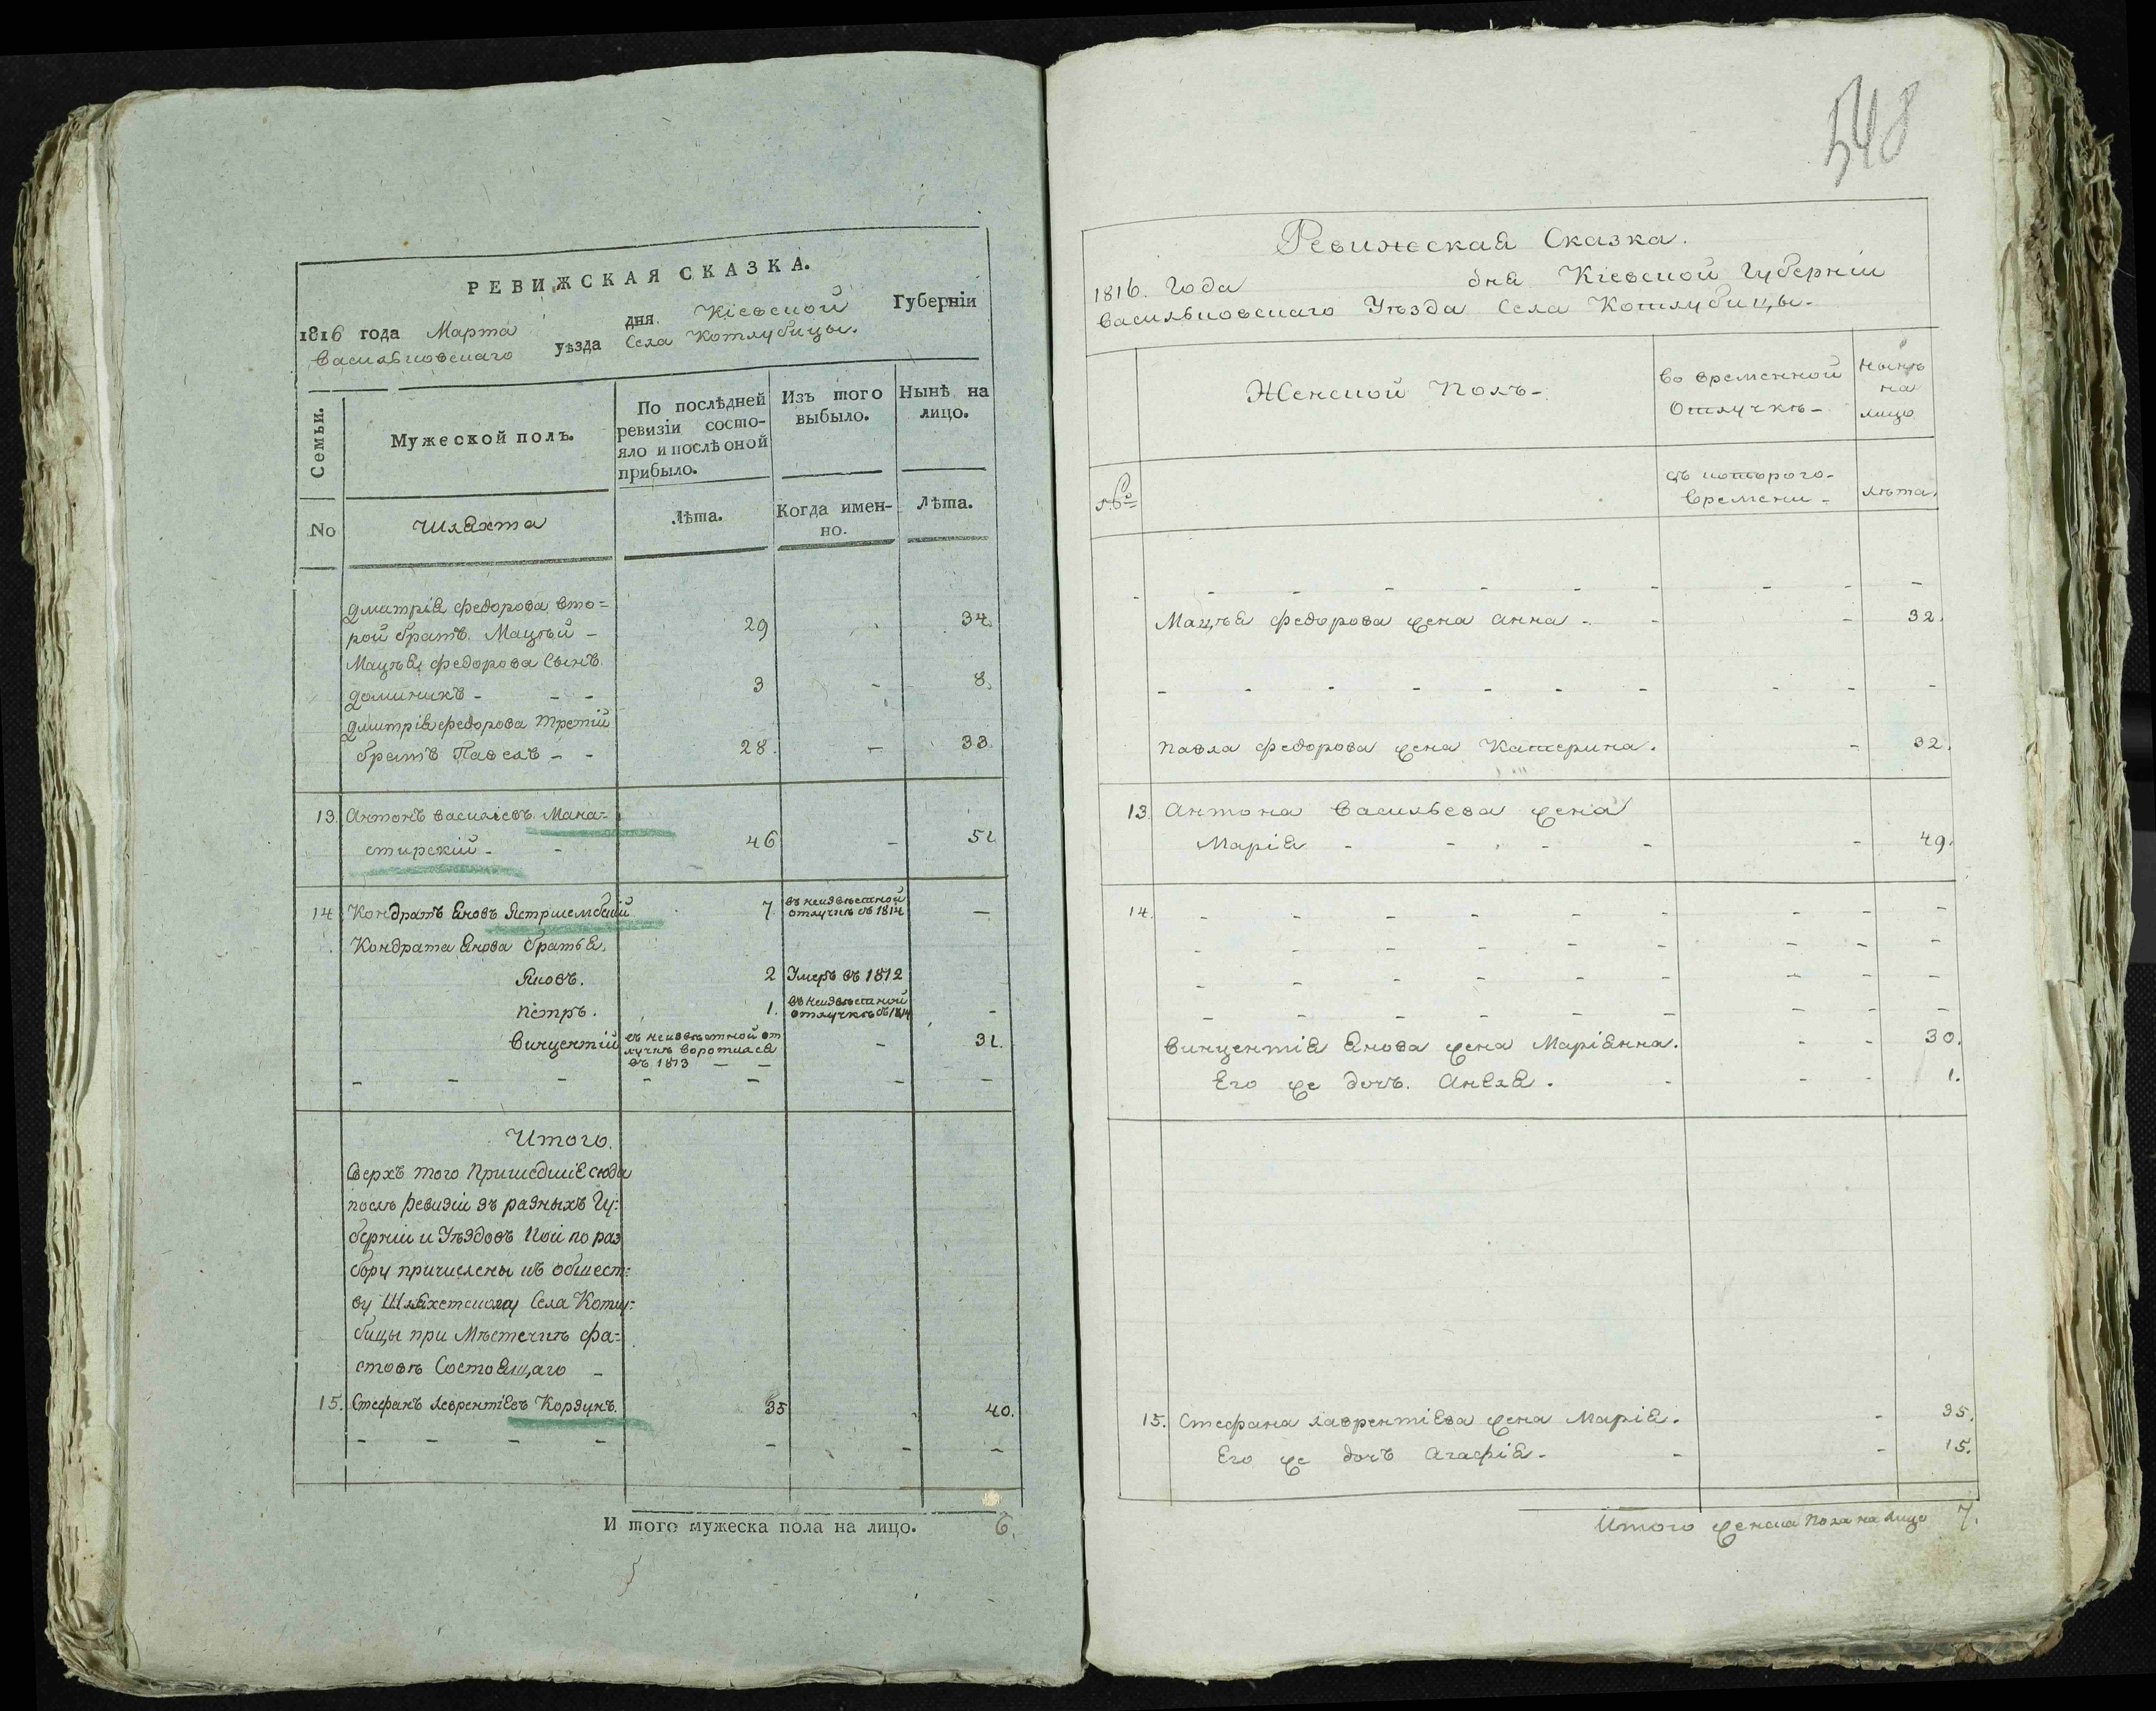 РЕВИЖСКАЯ СКАЗКА.
1816 года Марта дня. Кіевской Губерніи
Васильковскаго уѣзда Села Котлубицы.
Семьи.
Мужеской полъ.
По послѣдней
ревизіи состо-
яло и послѣ оной
прибыло.
Изъ того
выбыло.
Нынѣ на
лицо.
No
Шляхта
Лѣта.
Когда имен-
но.
Лѣта.
Дмитрія Федорова вто=
рой братъ Мацѣй - 29 34.
Мацѣя Федорова Сынъ
Доминикъ - - - 3 - 8.
Дмитрія Федорова третій
братъ Павелъ - - 28. - 33.
13. Антонъ Василіевъ Мана=
стирскій - - 46 - 51
14 Кондратъ Яновъ Ястршембскій 7. въ неизвѣстной
отлучкѣ съ 1814 -
Кондрата Янова братья.
Яковъ. 2 Умеръ въ 1812
Петръ. 1. въ неизвѣстной
отлучкѣ съ 1814 -
Винцентій съ неизвѣстной от
лучки воротился
въ 1813 - - - 31.
- - - - - - -
Итого.
Сверхъ того Пришедшіе сюда
послѣ Ревизіи зъ разныхъ Гу:
берніи и Уѣздовъ кои по раз
бору причислены къ общест:
ву Шляхетскому Села Котлу:
бицы при Мѣстечкѣ Фа=
стовѣ Состоящаго -
15. Стефанъ Лаврентіевъ Корзунъ. 35 40.
- - - - - - -
И того мужеска пола на лицо. 6.
548
Ревижеская Сказка.
1816. Года дня Кіевской Губерніи
Васильковскаго Уѣзда Села Котлубицы.
Женской Полъ -
во временной
Отлучкѣ -
Нынѣ
на
лицо
№
съ котораго-
времени -
лѣта.
- - - - - - - - - -
Мацѣя Федорова жена Анна - - - 32.
- - - - - - - - - -
Павла Федорова жена Катерина. - 32.
13. Антона Васильева жена
Марія - - - - - 49.
14. - - - - - - - - -
- - - - - - - - -
- - - - - - - - -
- - - - - - - - -
Винцентія Янова жена Маріянна. - - 30.
Его же дочь. Анеля. - - - 1.
15. Стефана Лаврентіева жена Марія. - 35.
Его же дочъ Агафія. - - - 15.
Итого женска пола на лицо 7.